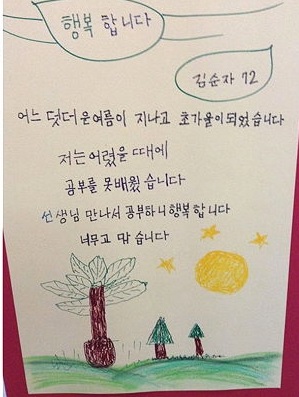 행복 합니다
김순자 72
어느 덧더운여름이 지나고 초가을이되었습니다
저는어렸을때에
공부를못배웠습니다
선생님 만나서공부하니행복합니다
너무고맙습니다